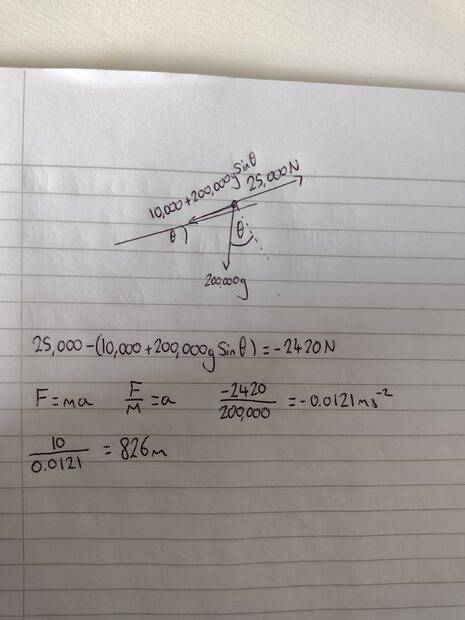 10,000+200,000g Sinθ
25,000N
θ
θ
200,000g
25,000-(10,000+200,000g Sinθ)=-2420N
F=ma F/M=a -2420/200,000 =-0.0121ms⁻²
10/0.0121 =826m